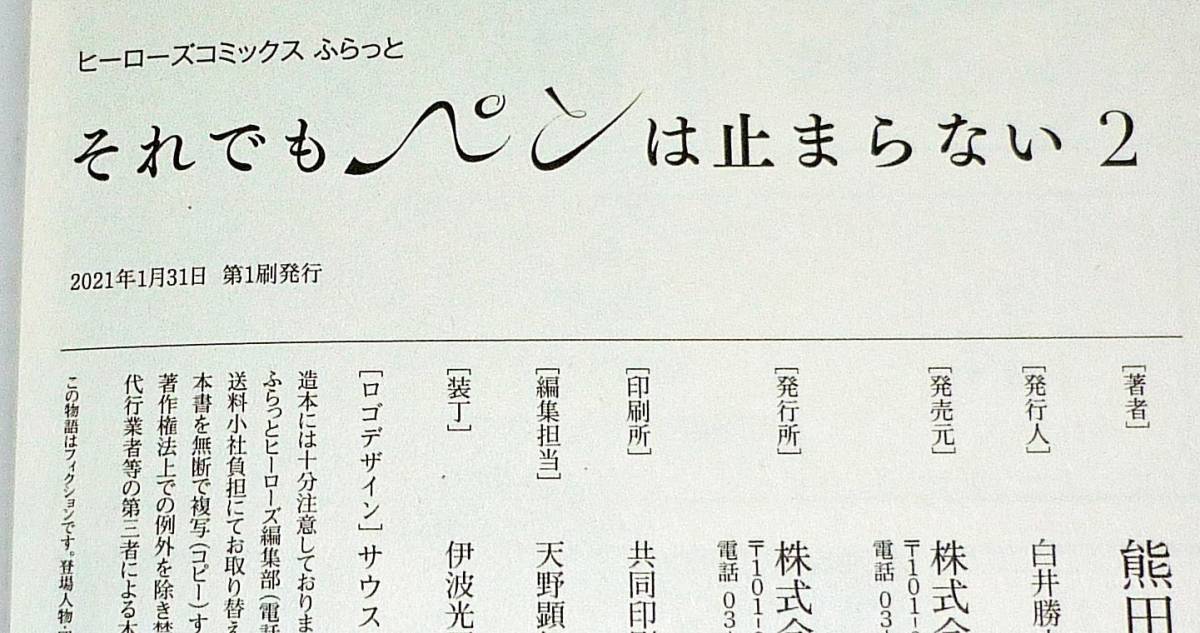 ヒーローズコミックス ふらっと
それでもペンは止まらない 2
2021年1月31日 第1刷発行
[著者] 熊田
[発行人] 白井勝
[発売元] 株式会
〒101-
電話 03
[発行所] 株式会
〒101-
電話 03
[印刷所] 共同印刷
[編集担当] 天野顕
[装丁] 伊波光
[ロゴデザイン] サウス
造本には十分注意しておりま
ふらっとヒーローズ編集部(電話
送料小社負担にてお取り替え
本書を無断で複写(コピー)す
著作権法上での例外を除き禁
代行業者等の第三者による本
この物語はフィクションです。登場人物・